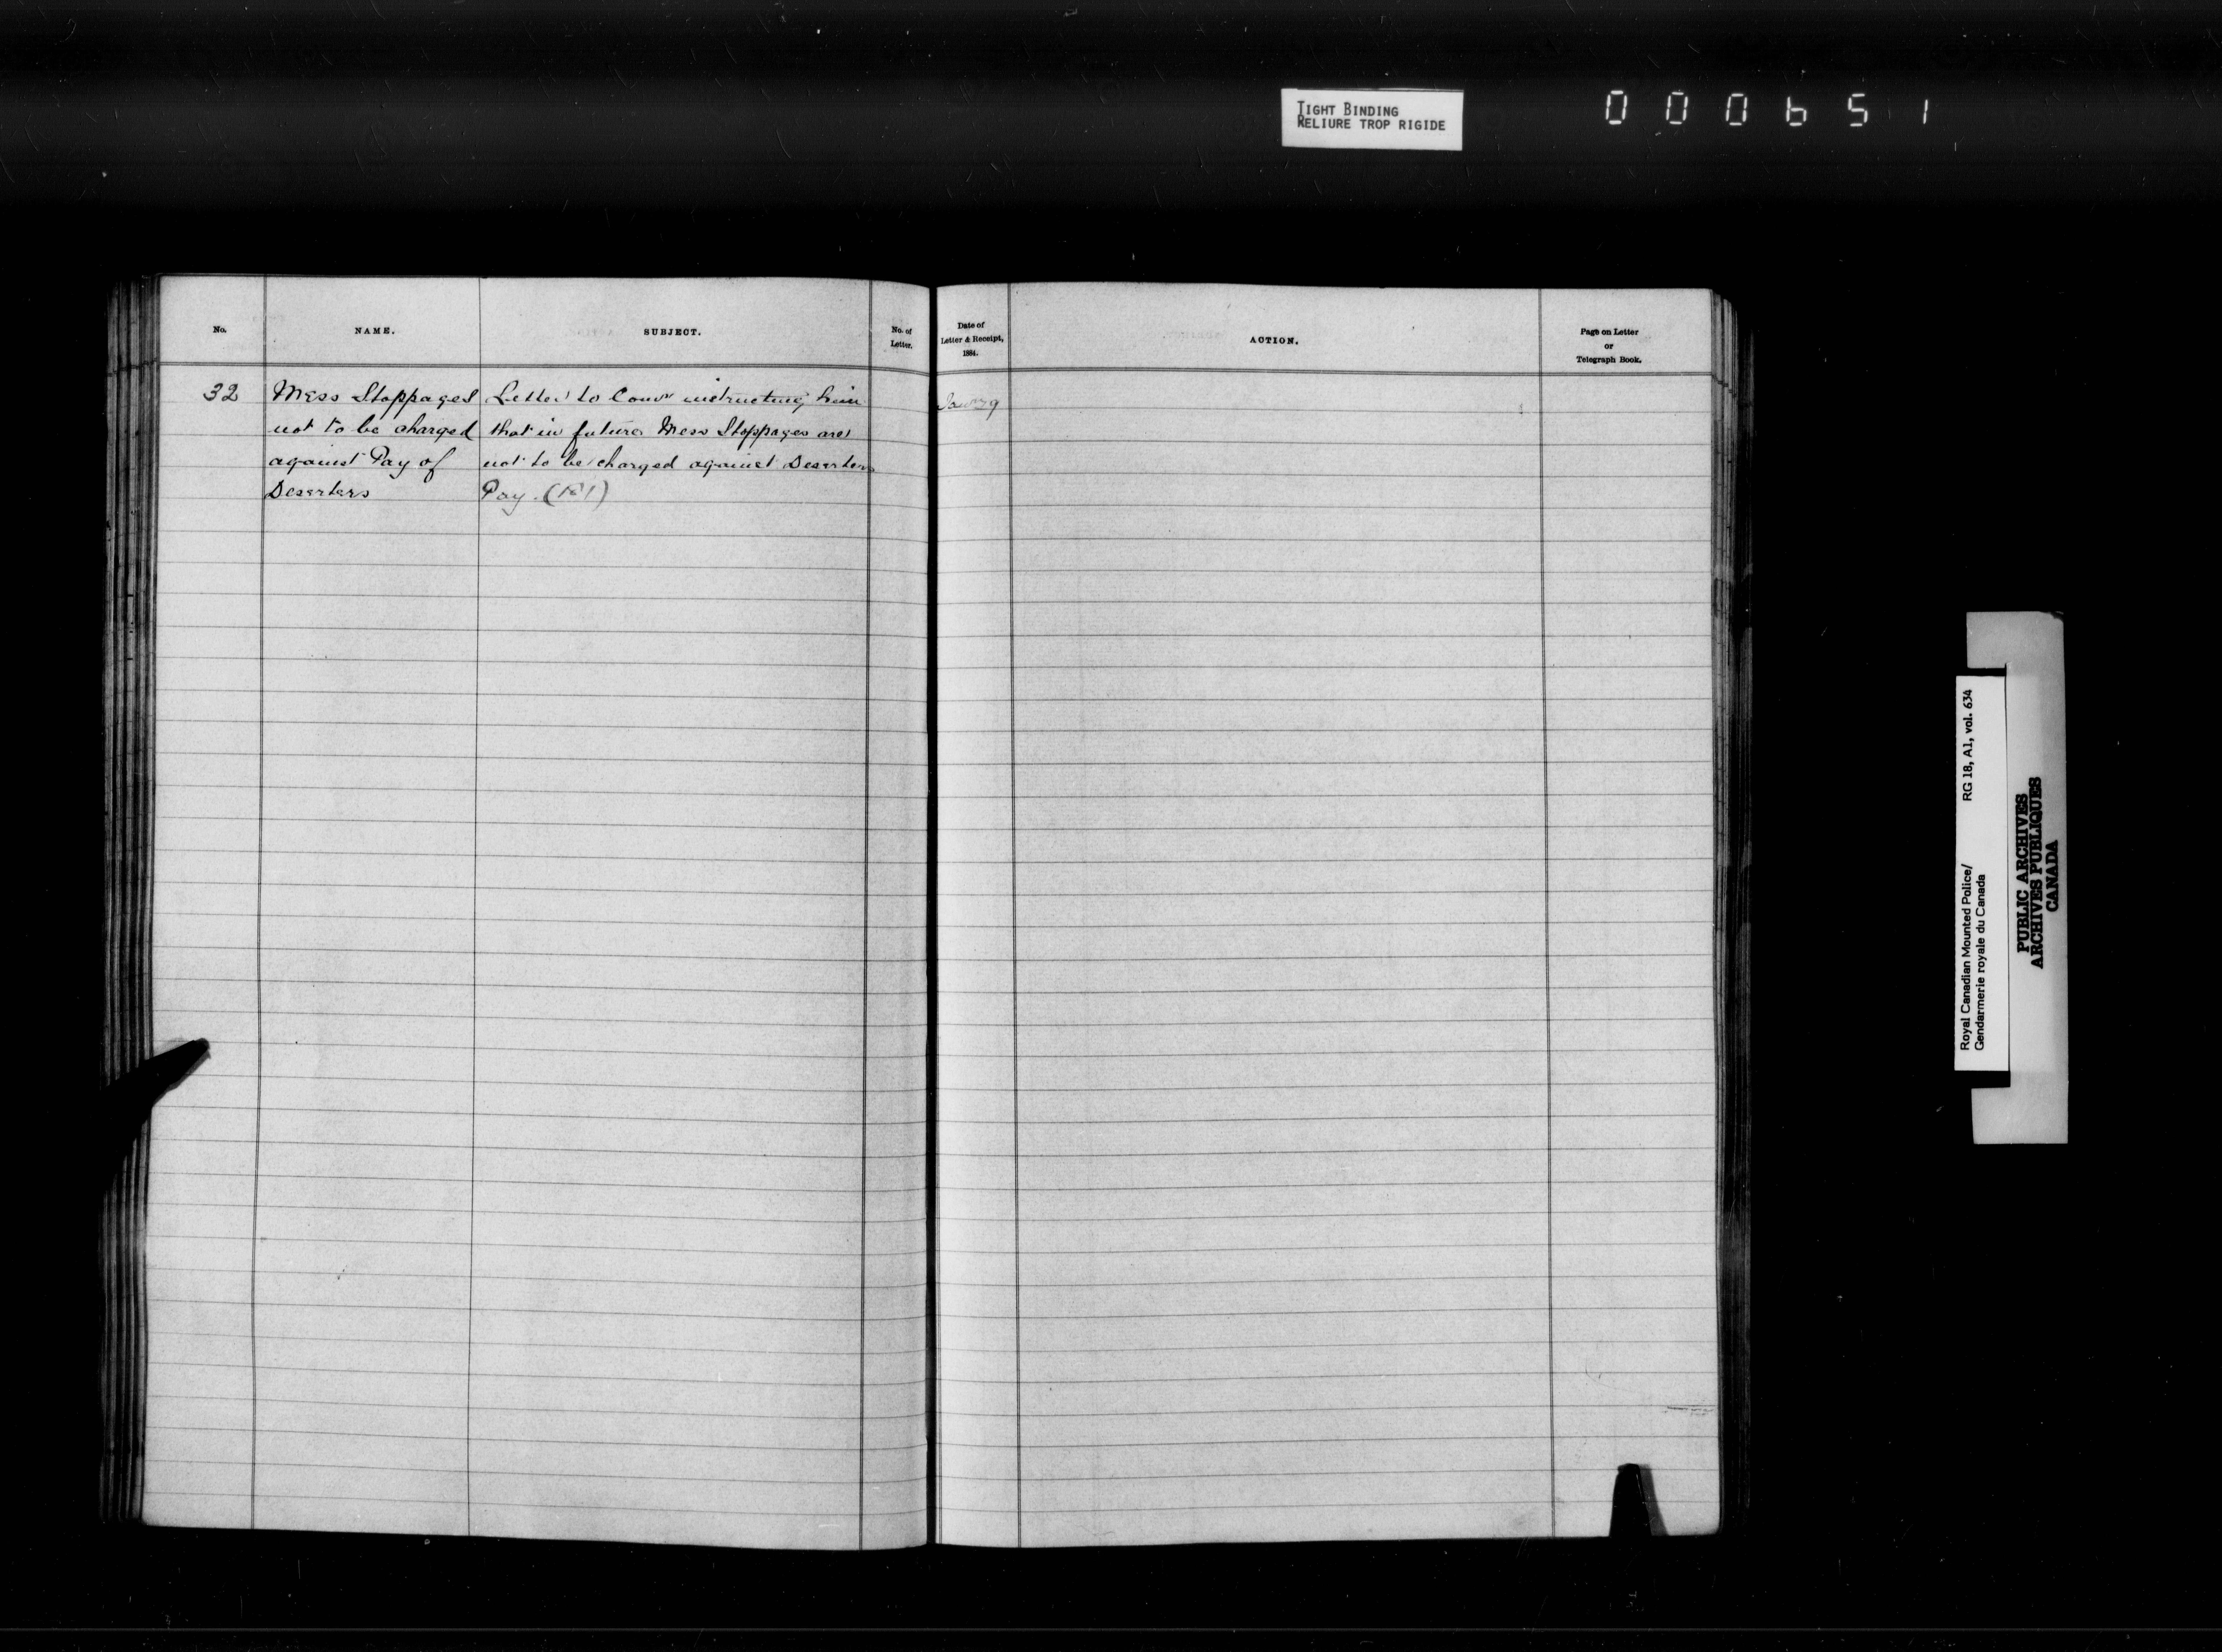 TIGHT BINDING
RELIURE TROP RIGIDE
000651
No.
NAME.
SUBJECT.
No. of
Letter.
Date of
Letter & Receipt,
1884.
ACTION.
Page on Letter
or
Telegraph Book.
32
Mess Stoppages
not to be charged
against Pay of
Deserters
Letter to Comr instructing him
that in future Mess Stoppages are
not to be charged against Deserters
Pay.
Jany 9
Royal Canadian Mounted Police/ RG 18, A1, vol. 634
Gendarmerie royale du Canada
PUBLIC ARCHIVES
ARCHIVES PUBLIQUES
CANADA